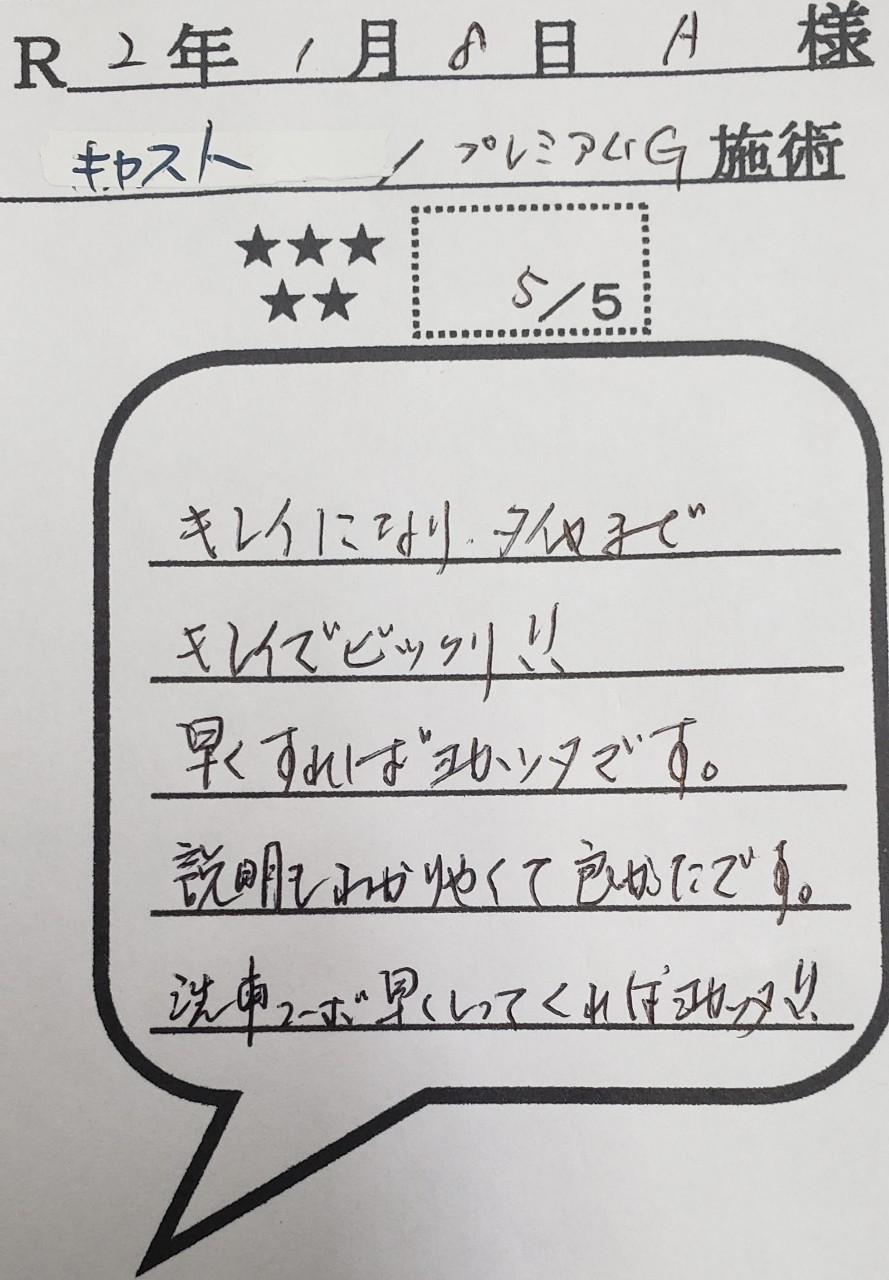 R 2年 1月 8日 A 様
キャスト / プレミアムG 施術
★★★
★★
5/5
キレイになり、タイヤまで
キレイでビックリ!!
早くすればヨカッタです。
説明もわかりやくて良かたです。
洗車コーボ早くしってくればヨカッタ!!